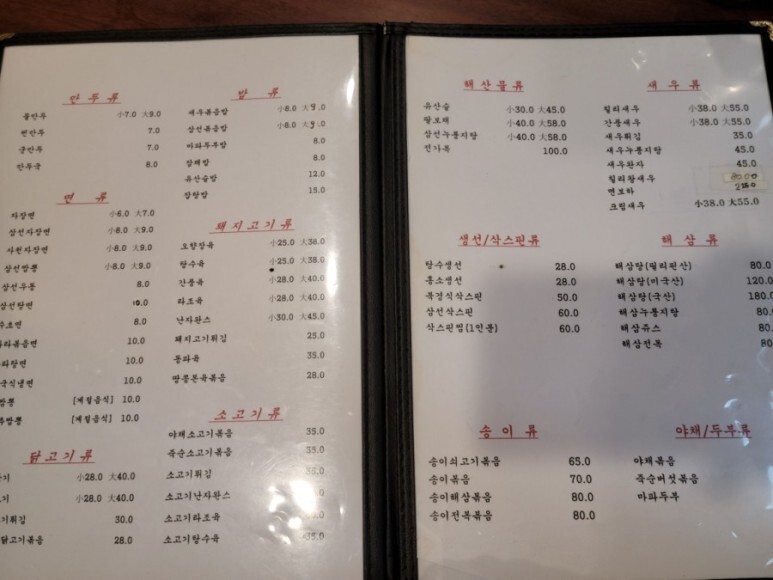 만두류
물만두 小7.0 大9.0
찐만두 7.0
군만두 7.0
만두국 8.0
면 류
자장면 小6.0 大7.0
삼선자장면 小8.0 大9.0
사천자장면 小8.0 大9.0
삼선짬뽕 小8.0 大9.0
삼선우동 8.0
삼선탕면 10.0
8.0
10.0
10.0
10.0
짬뽕 [계절음식] 10.0
짬뽕 [계절음식] 10.0
닭고기류
小28.0 大40.0
小28.0 大40.0
30.0
28.0
밥 류
새우볶음밥 小8.0 大9.0
삼선볶음밥 小8.0 大9.0
마파두부밥 8.0
잡채밥 8.0
유산슬밥 12.0
잡탕밥 15.0
돼지고기류
오향장육 小25.0 大38.0
탕수육 小25.0 大38.0
간풍육 小28.0 大40.0
라조육 小28.0 大40.0
난자완스 小30.0 大45.0
돼지고기튀김 25.0
동파육 35.0
땅콩돈육볶음 28.0
소고기류
야채소고기볶음 35.0
죽순소고기볶음 35.0
소고기튀김
소고기난자완스
소고기라조육
소고기탕수육
해산물류
유산슬 小30.0 大45.0
팔보채 小40.0 大58.0
삼선누룽지탕 小40.0 大58.0
전가복 100.0
새우류
칠리새우 小38.0 大55.0
간풍새우 小38.0 大55.0
새우튀김 35.0
새우누룽지탕 45.0
새우완자 45.0
칠리왕새우
멘보샤
크림새우 小38.0 大55.0
생선/삭스핀류
탕수생선 28.0
홍소생선 28.0
북경식삭스핀 50.0
삼선삭스핀 60.0
삭스핀찜(1인분) 60.0
해삼류
해삼탕(필리핀산) 80.0
해삼탕(미국산) 120.0
해삼탕(국산) 180.0
해삼누룽지탕 80.
해삼쥬스 80.
해삼전복 80
송이류
송이쇠고기볶음 65.0
송이볶음 70.0
송이해삼볶음 80.0
송이전복볶음 80.0
야채/두부류
야채볶음
죽순버섯볶음
마파두부